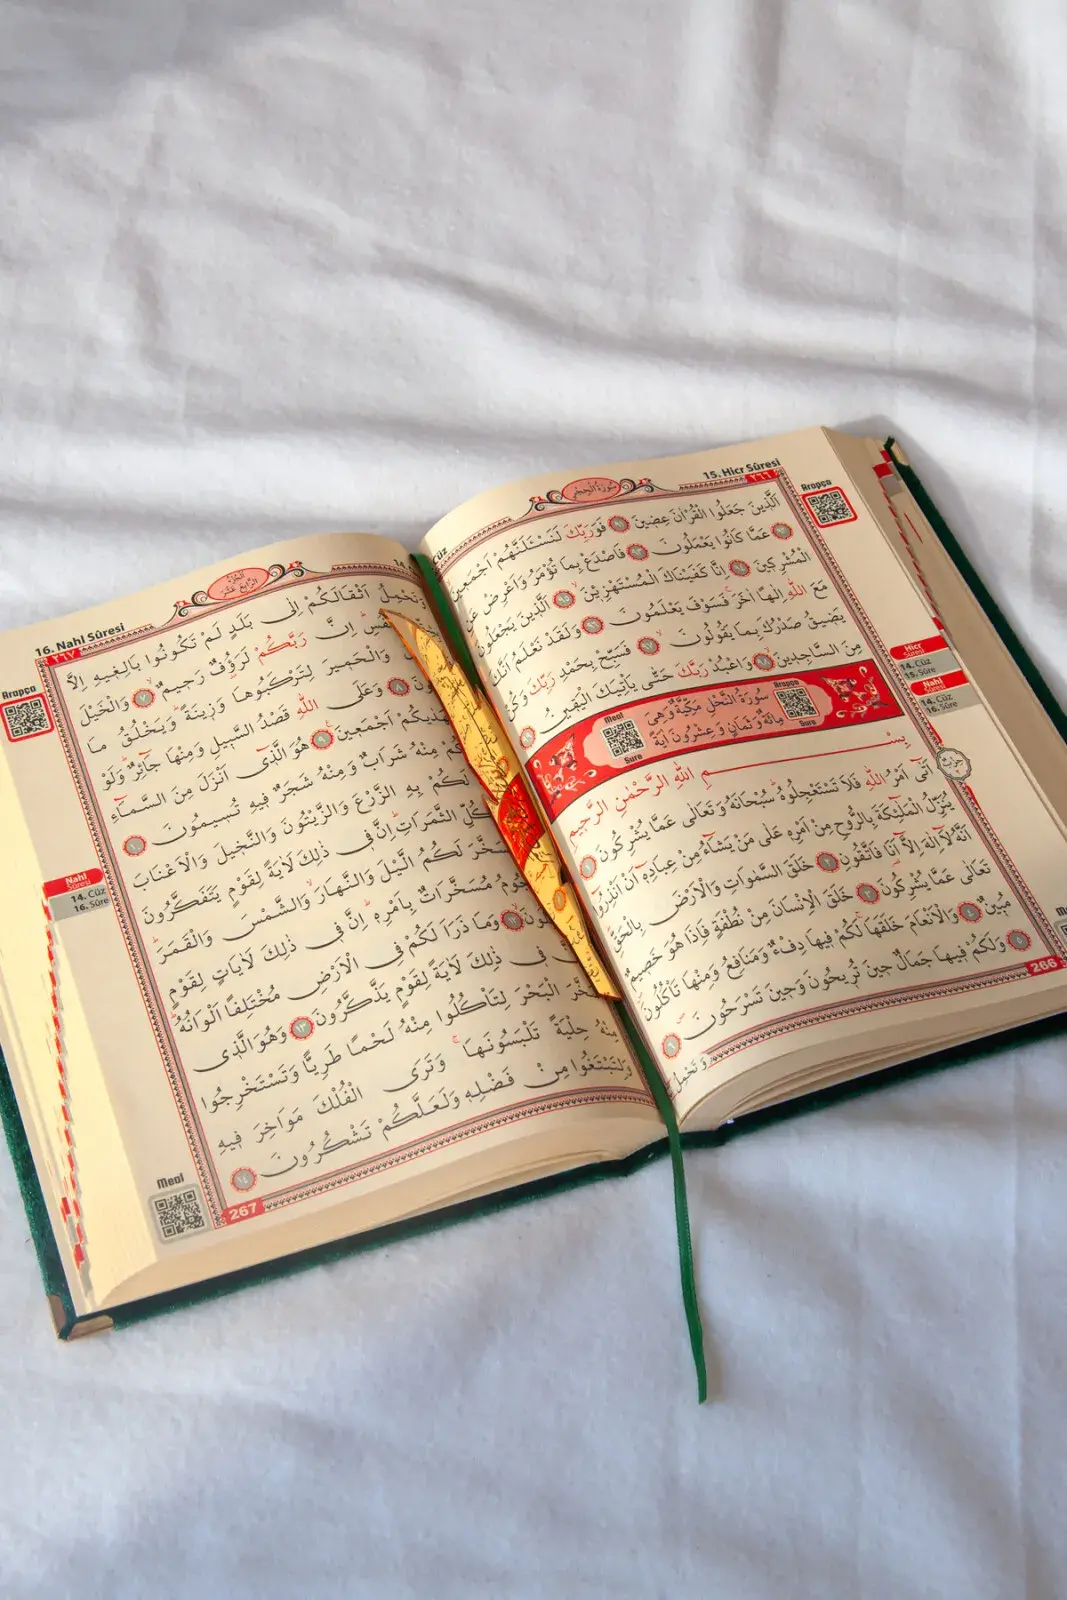 15. Hicr Sûresi
٢٦٦
سُورَةُ الْحِجْرِ
Cüz
Arapça
اَلَّذ۪ينَ جَعَلُوا الْقُرْاٰنَ عِض۪ينَ ﴿٩١﴾ فَوَرَبِّكَ لَنَسْـَٔلَنَّهُمْ اَجْمَع۪ينَ
﴿٩٢﴾ عَمَّا كَانُوا يَعْمَلُونَ ﴿٩٣﴾ فَاصْدَعْ بِمَا تُؤْمَرُ وَاَعْرِضْ عَنِ
الْمُشْرِك۪ينَ ﴿٩٤﴾ اِنَّا كَفَيْنَاكَ الْمُسْتَهْزِء۪ينَ ﴿٩٥﴾ اَلَّذ۪ينَ يَجْعَلُونَ
مَعَ اللّٰهِ اِلٰهًا اٰخَرَ فَسَوْفَ يَعْلَمُونَ ﴿٩٦﴾ وَلَقَدْ نَعْلَمُ اَنَّكَ
يَض۪يقُ صَدْرُكَ بِمَا يَقُولُونَ ﴿٩٧﴾ فَسَبِّحْ بِحَمْدِ رَبِّكَ وَكُنْ
مِنَ السَّاجِد۪ينَ ﴿٩٨﴾ وَاعْبُدْ رَبَّكَ حَتّٰى يَأْتِيَكَ الْيَق۪ينُ ﴿٩٩﴾
Hicr
Sûresi
14. Cüz
15. Sûre
Nahl
Sûresi
14. Cüz
16. Sûre
Arapça
Sure
سُورَةُ النَّحْلِ مَكِّيَّةٌ وَهِىَ
مِائَةٌ وَثَمَانٍ وَعِشْرُونَ اٰيَةً
Meal
Sure
بِسْمِ اللّٰهِ الرَّحْمٰنِ الرَّح۪يمِ
اَتٰٓى اَمْرُ اللّٰهِ فَلَا تَسْتَعْجِلُوهُ سُبْحَانَهُ وَتَعَالٰى عَمَّا يُشْرِكُونَ ﴿١﴾
يُنَزِّلُ الْمَلٰٓئِكَةَ بِالرُّوحِ مِنْ اَمْرِه۪ عَلٰى مَنْ يَشَٓاءُ مِنْ عِبَادِه۪ٓ اَنْ اَنْذِرُٓوا
اَنَّهُ لَٓا اِلٰهَ اِلَّٓا اَنَا فَاتَّقُونِ ﴿٢﴾ خَلَقَ السَّمٰوَاتِ وَالْاَرْضَ بِالْحَقِّ
تَعَالٰى عَمَّا يُشْرِكُونَ ﴿٣﴾ خَلَقَ الْاِنْسَانَ مِنْ نُطْفَةٍ فَاِذَا هُوَ خَص۪يمٌ
مُب۪ينٌ ﴿٤﴾ وَالْاَنْعَامَ خَلَقَهَا لَكُمْ ف۪يهَا دِفْءٌ وَمَنَافِعُ وَمِنْهَا تَأْكُلُونَ
﴿٥﴾ وَلَكُمْ ف۪يهَا جَمَالٌ ح۪ينَ تُر۪يحُونَ وَح۪ينَ تَسْرَحُونَ ﴿٦﴾
وَتَحْمِلُ
266
16. Nahl Sûresi
٢٦٧
اَلْجُزْءُ
الرَّابِعَ عَشَرَ
Arapça
وَتَحْمِلُ اَثْقَالَكُمْ اِلٰى بَلَدٍ لَمْ تَكُونُوا بَالِغ۪يهِ اِلَّا
اِنَّ رَبَّكُمْ لَرَؤُ۫فٌ رَح۪يمٌ ﴿٧﴾ وَالْخَيْلَ
وَالْحَم۪يرَ لِتَرْكَبُوهَا وَز۪ينَةً وَيَخْلُقُ مَا
﴿٨﴾ وَعَلَى اللّٰهِ قَصْدُ السَّب۪يلِ وَمِنْهَا جَٓائِرٌ وَلَوْ
اَجْمَع۪ينَ ﴿٩﴾ هُوَ الَّذ۪ٓى اَنْزَلَ مِنَ السَّمَٓاءِ
مِنْهُ شَرَابٌ وَمِنْهُ شَجَرٌ ف۪يهِ تُس۪يمُونَ ﴿١٠﴾
لَكُمْ بِهِ الزَّرْعَ وَالزَّيْتُونَ وَالنَّخ۪يلَ وَالْاَعْنَابَ
كُلِّ الثَّمَرَاتِ اِنَّ ف۪ى ذٰلِكَ لَاٰيَةً لِقَوْمٍ يَتَفَكَّرُونَ
لَكُمُ الَّيْلَ وَالنَّهَارَ وَالشَّمْسَ وَالْقَمَرَ
مُسَخَّرَاتٌ بِاَمْرِه۪ اِنَّ ف۪ى ذٰلِكَ لَاٰيَاتٍ لِقَوْمٍ
﴿١٢﴾ وَمَا ذَرَاَ لَكُمْ فِى الْاَرْضِ مُخْتَلِفًا اَلْوَانُهُ
ف۪ى ذٰلِكَ لَاٰيَةً لِقَوْمٍ يَذَّكَّرُونَ ﴿١٣﴾ وَهُوَ الَّذ۪ى
الْبَحْرَ لِتَأْكُلُوا مِنْهُ لَحْمًا طَرِيًّا وَتَسْتَخْرِجُوا
مِنْهُ حِلْيَةً تَلْبَسُونَهَا وَتَرَى الْفُلْكَ مَوَاخِرَ ف۪يهِ
وَلِتَبْتَغُوا مِنْ فَضْلِه۪ وَلَعَلَّكُمْ تَشْكُرُونَ ﴿١٤﴾
Nahl
Sûresi
14. Cüz
16. Sûre
Meal
267